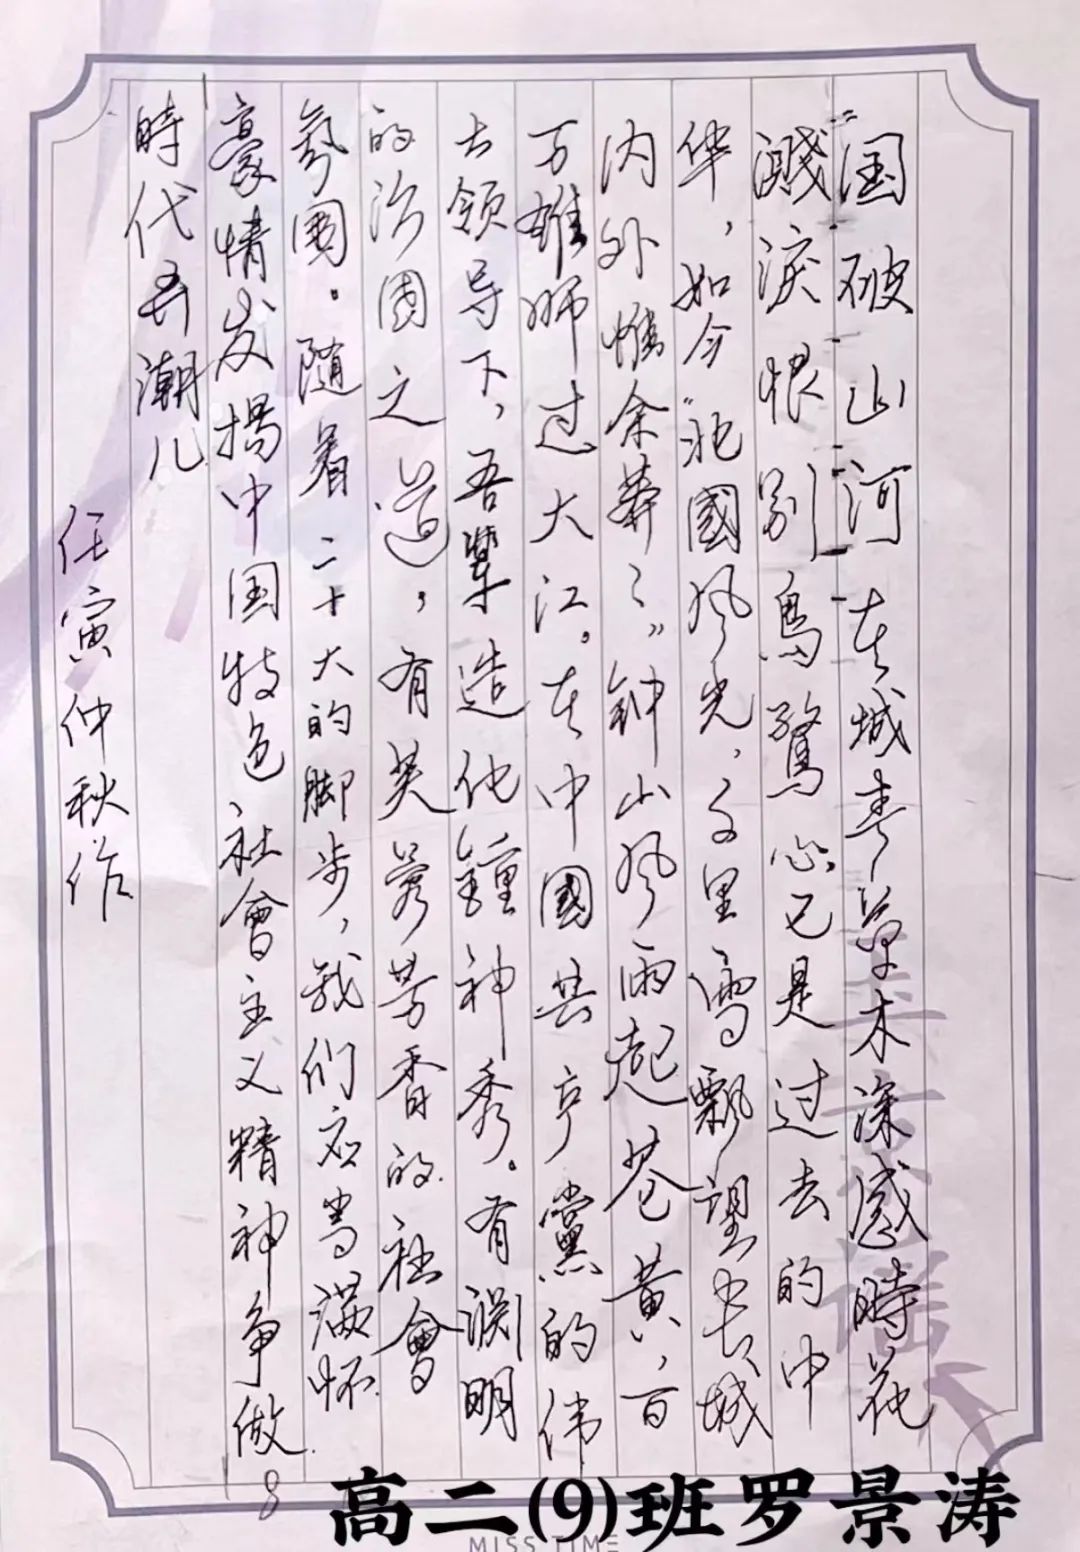 国破山河在城春草木深感時花
溅淚恨别鳥驚心已是过去的中
华，如今“北國风光，千里雪飘望长城
内外惟余莽々”钟山风雨起苍黄，百
万雄师过大江。在中國共产黨的伟
大领导下，吾辈造化鐘神秀。有渊明
的治国之道，有芙蓉芳香的社會
氛围。随着二十大的脚步，我们应当满怀
豪情发揚中国特色社會主义精神争做
時代弄潮儿
任寅仲秋作
高二(9)班罗景涛
MISS TIME